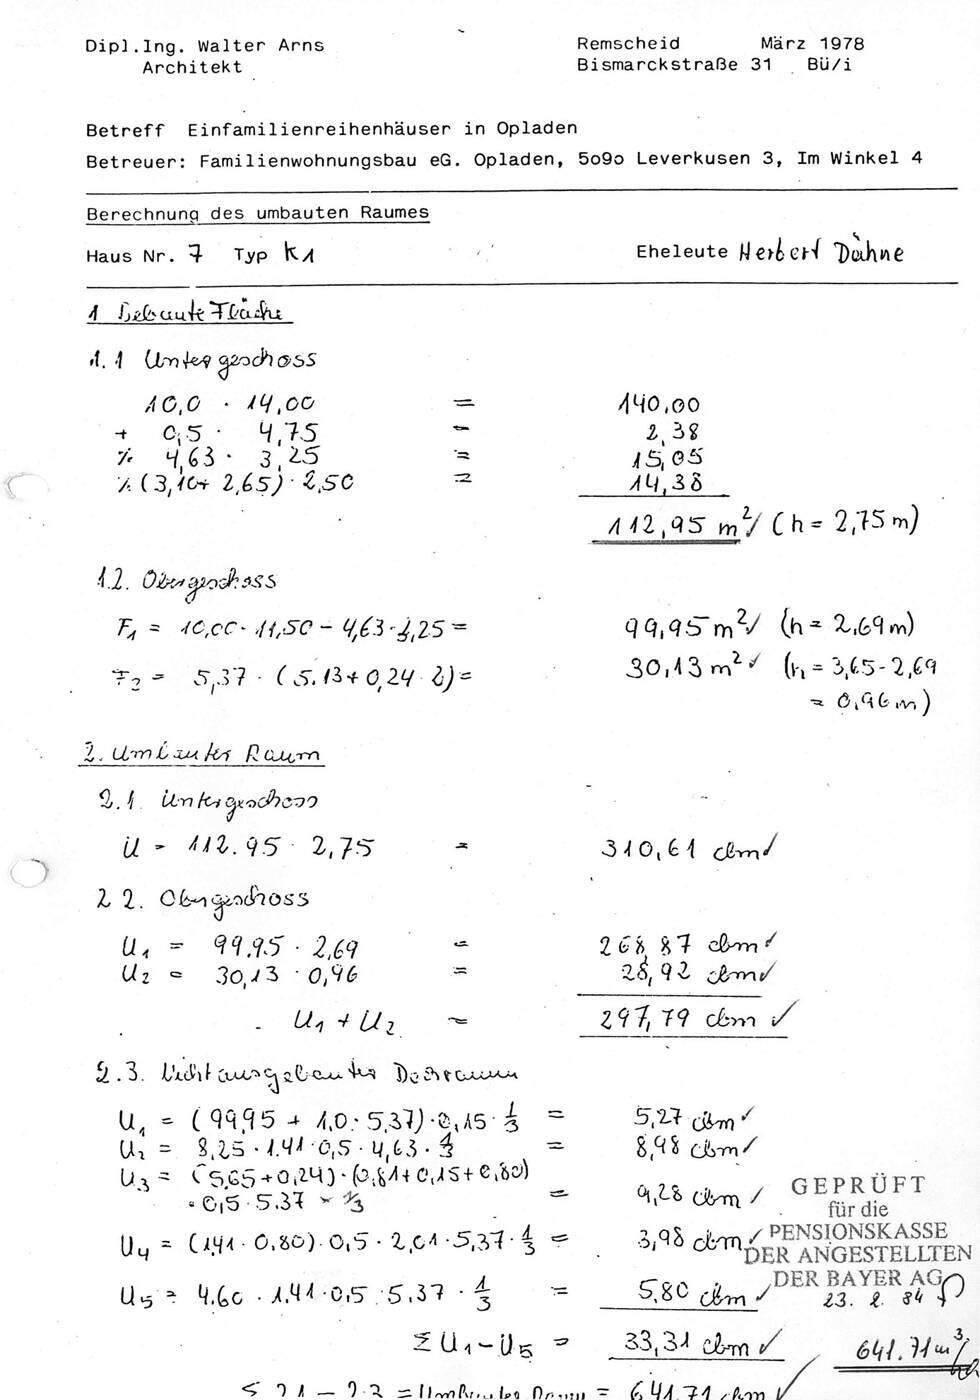 Dipl.Ing. Walter Arns Remscheid März 1978
Architekt Bismarckstraße 31 Bü/i
Betreff Einfamilienreihenhäuser in Opladen
Betreuer: Familienwohnungsbau eG. Opladen, 5o9o Leverkusen 3, Im Winkel 4
Berechnung des umbauten Raumes
Haus Nr. 7 Typ K1 Eheleute Herbert Dähne
1 Bebaute Fläche
1.1 Untergeschoss
10,0 · 14,00 = 140,00
+ 0,5 · 4,75 = 2,38
% 4,63 · 3,25 = 15,05
% (3,10+ 2,65) · 2,50 = 14,38
112,95 m²✓ (h = 2,75 m)
1.2. Obergeschoss
F1 = 10,00 · 11,50 - 4,63 · 3,25 = 99,95 m²✓ (h = 2,69 m)
F2 = 5,37 · (5.13 + 0,24 · 2) = 30,13 m²✓ (h = 3,65 - 2,69
= 0,96 m)
2. Umbauter Raum
2.1. Untergeschoss
U = 112.95 · 2,75 = 310,61 cbm✓
2 2. Obergeschoss
U1 = 99,95 · 2,69 = 268,87 cbm✓
U2 = 30,13 · 0,96 = 28,92 cbm✓
U1 + U2 = 297,79 cbm ✓
2.3. Nichtausgebauter Dachraum
U1 = (99,95 + 1,0 · 5,37) · 0,15 · 1/3 = 5,27 cbm✓
U2 = 8,25 · 1.41 · 0,5 · 4,63 · 1/3 = 8,98 cbm✓
U3 = (5,65 + 0,24) · (0,81 + 0,15 + 0,80)
· 0,5 · 5.37 · 1/3 = 9,28 cbm ✓
GEPRÜFT
für die
PENSIONSKASSE
DER ANGESTELLTEN
DER BAYER AG
23. 2. 84
U4 = (1,41 · 0,80) · 0,5 · 2,01 · 5,37 · 1/3 = 3,98 cbm ✓
U5 = 4,60 · 1,41 · 0,5 · 5,37 · 1/3 = 5,80 cbm ✓
Σ U1 - U5 = 33,31 cbm ✓ 641.71 m³
Σ 2.1 - 2.3 = Umbauter Raum = 641,71 cbm ✓